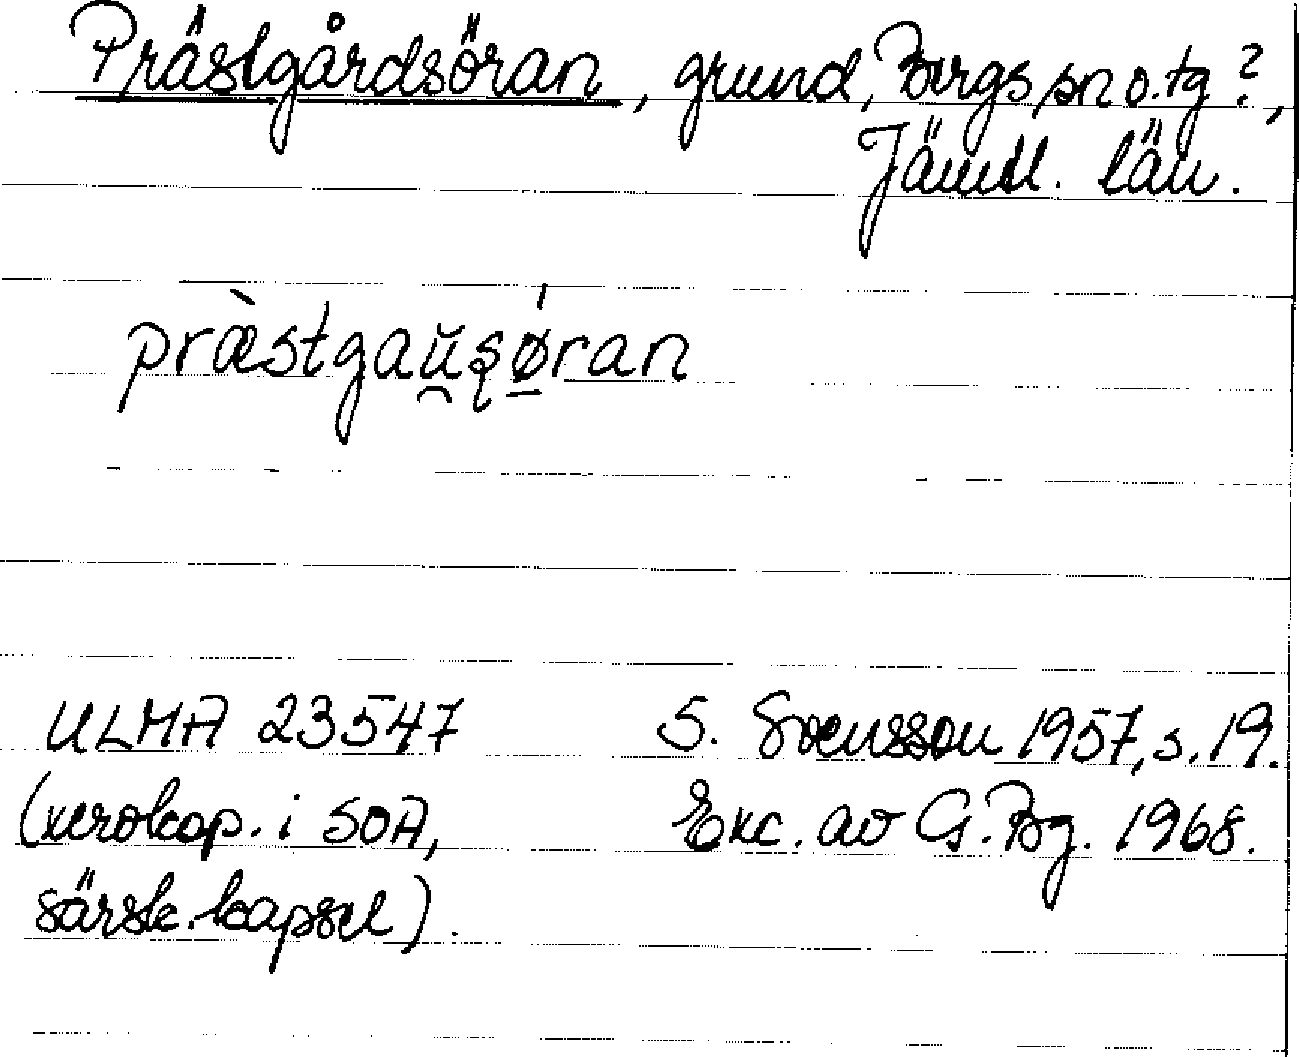 Prästgårdsöran, grund, Bergs sn o. tg?,
Jämtl. län.
præ̀stgaŭ̯ʂǿ̲ran
ULMA 23547
(xerokop. i SOA,
särsk. kapsel).
S. Svensson 1957, s. 19.
Exc. av G. Bg. 1968.